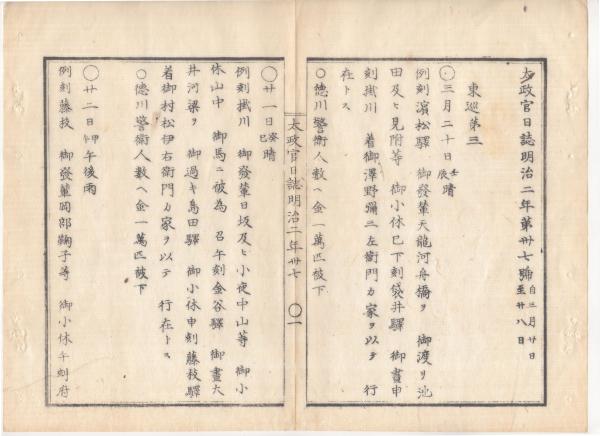 太政官日誌明治二年第卅七號 自三月廿日至廿八日
東巡第三
○三月二十日壬辰晴
例刻濱松驛　御發輦天龍河舟橋ヲ　御渡リ池
田及ヒ見附等　御小休巳下刻袋井驛　御晝申
刻掛川　着御澤野彌三左衞門カ家ヲ以テ　行
在トス
○德川警衞人數ヘ金一萬匹被下
太政官日誌明治二年卅七　○一
○廿一日癸巳晴
例刻掛川　御發輦日坂及ヒ小夜中山等　御小
休山中　御馬ニ被為　召午刻金谷驛　御晝大
井河梁ヲ　御過キ島田驛　御小休申刻藤枝驛
着御村松伊右衞門カ家ヲ以テ　行在トス
○德川警衞人數ヘ金一萬匹被下
○廿二日甲午午後雨
例刻藤枝　御發輦岡部鞠子等　御小休午刻府